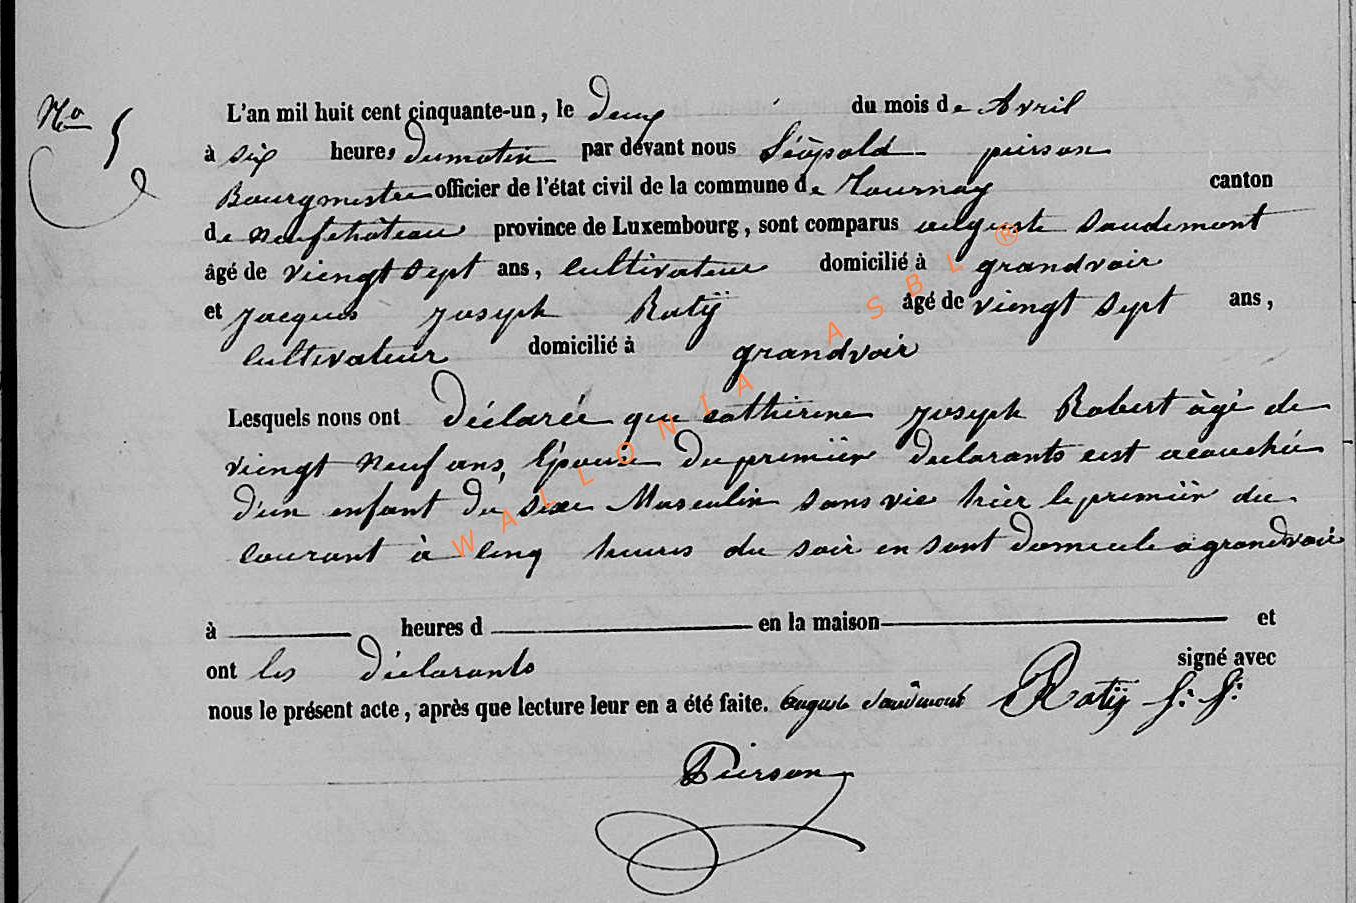 No 5
L'an mil huit cent cinquante-un, le deux du mois de Avril
à six heures dumatin par devant nous Léopold pierson
Bourgmestre officier de l'état civil de la commune de Tournay canton
de neufchâteau province de Luxembourg, sont comparus auguste Saudemont
âgé de viengt sept ans, cultivateur domicilié à grandvoir
et jacques joseph Ratÿ âgé de viengt sept ans,
cultivateur domicilié à grandvoir
Lesquels nous ont déclarée que catherine joseph Robert âgé de
viengt neuf ans, Epouse du premiër declarants est acouchée
d'un enfant du sexe Masculin sans vie hier le premiër du
courant à cinq heures du soir en sont domicile a grandvoir
à heures d en la maison et
ont les déclarants signé avec
nous le présent acte, après que lecture leur en a été faite. auguste saudmont Ratÿ j: j:
Pierson
WALLONIA ASBL ®